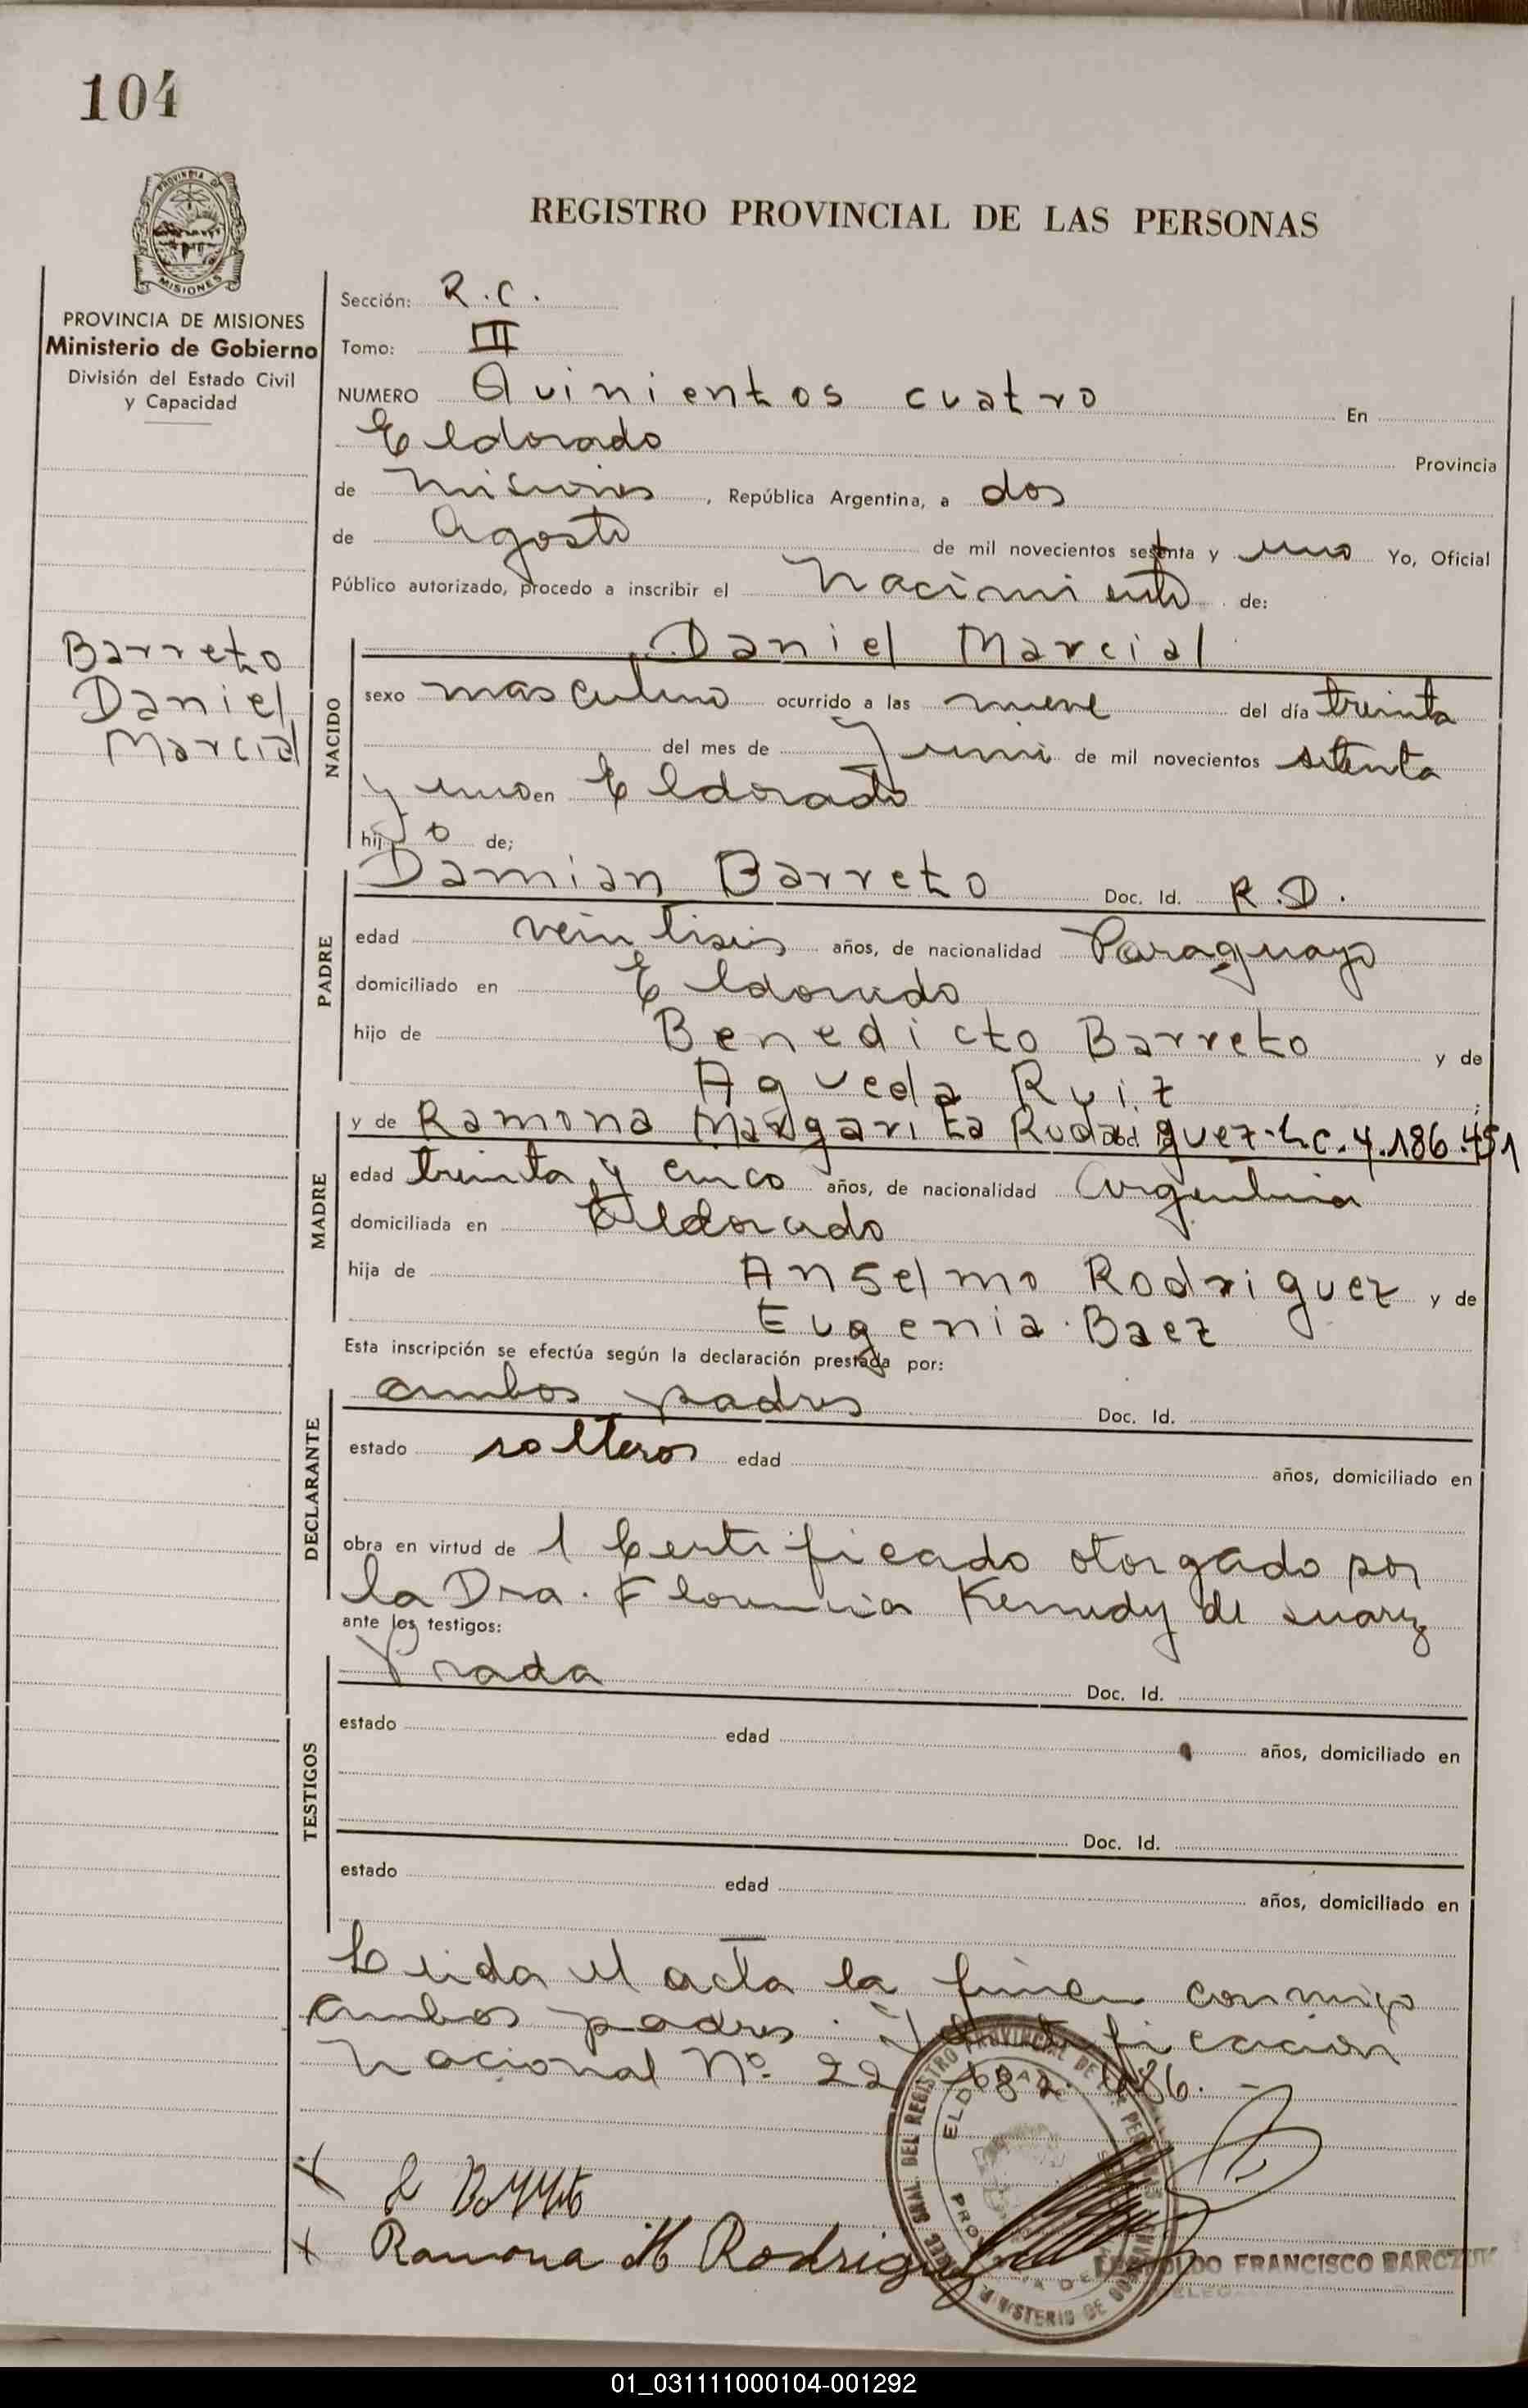 104
PROVINCIA DE
MISIONES
REGISTRO PROVINCIAL DE LAS PERSONAS
PROVINCIA DE MISIONES
Ministerio de Gobierno
División del Estado Civil
y Capacidad
Barreto
Daniel
Marcial
Sección: R.C.
Tomo: III
NUMERO Quinientos cuatro En
Eldorado Provincia
de Misiones, República Argentina, a dos
de Agosto de mil novecientos setenta y uno Yo, Oficial
Público autorizado, procedo a inscribir el nacimiento de:
NACIDO
Daniel Marcial
sexo masculino ocurrido a las nueve del día treinta
del mes de Junio de mil novecientos setenta
y uno en Eldorado
hijo de;
PADRE
Damian Barreto Doc. Id. R.D.
edad veintiseis años, de nacionalidad Paraguayo
domiciliado en Eldorado
hijo de Benedicto Barreto y de
Agueda Ruiz ;
MADRE
y de Ramona Margarita Rodriguez-L.C.4.186.451
edad treinta y cinco años, de nacionalidad Argentina
domiciliada en Eldorado
hija de Anselmo Rodriguez y de
Eugenia Baez
Esta inscripción se efectúa según la declaración prestada por:
DECLARANTE
ambos padres Doc. Id.
estado solteros edad años, domiciliado en
obra en virtud de 1 Certificado otorgado por
la Dra. Florencia Kennedy de Suarez
ante los testigos:
TESTIGOS
Prada Doc. Id.
estado edad años, domiciliado en
Doc. Id.
estado edad años, domiciliado en
Leida el acta la firman conmigo
ambos padres. Identificación
Nacional Nº 22
DEL REGISTRO PROVINCIAL DE
MINISTERIO DE
Ramona M Rodriguez
FRANCISCO BARCZUK
01_031111000104-001292